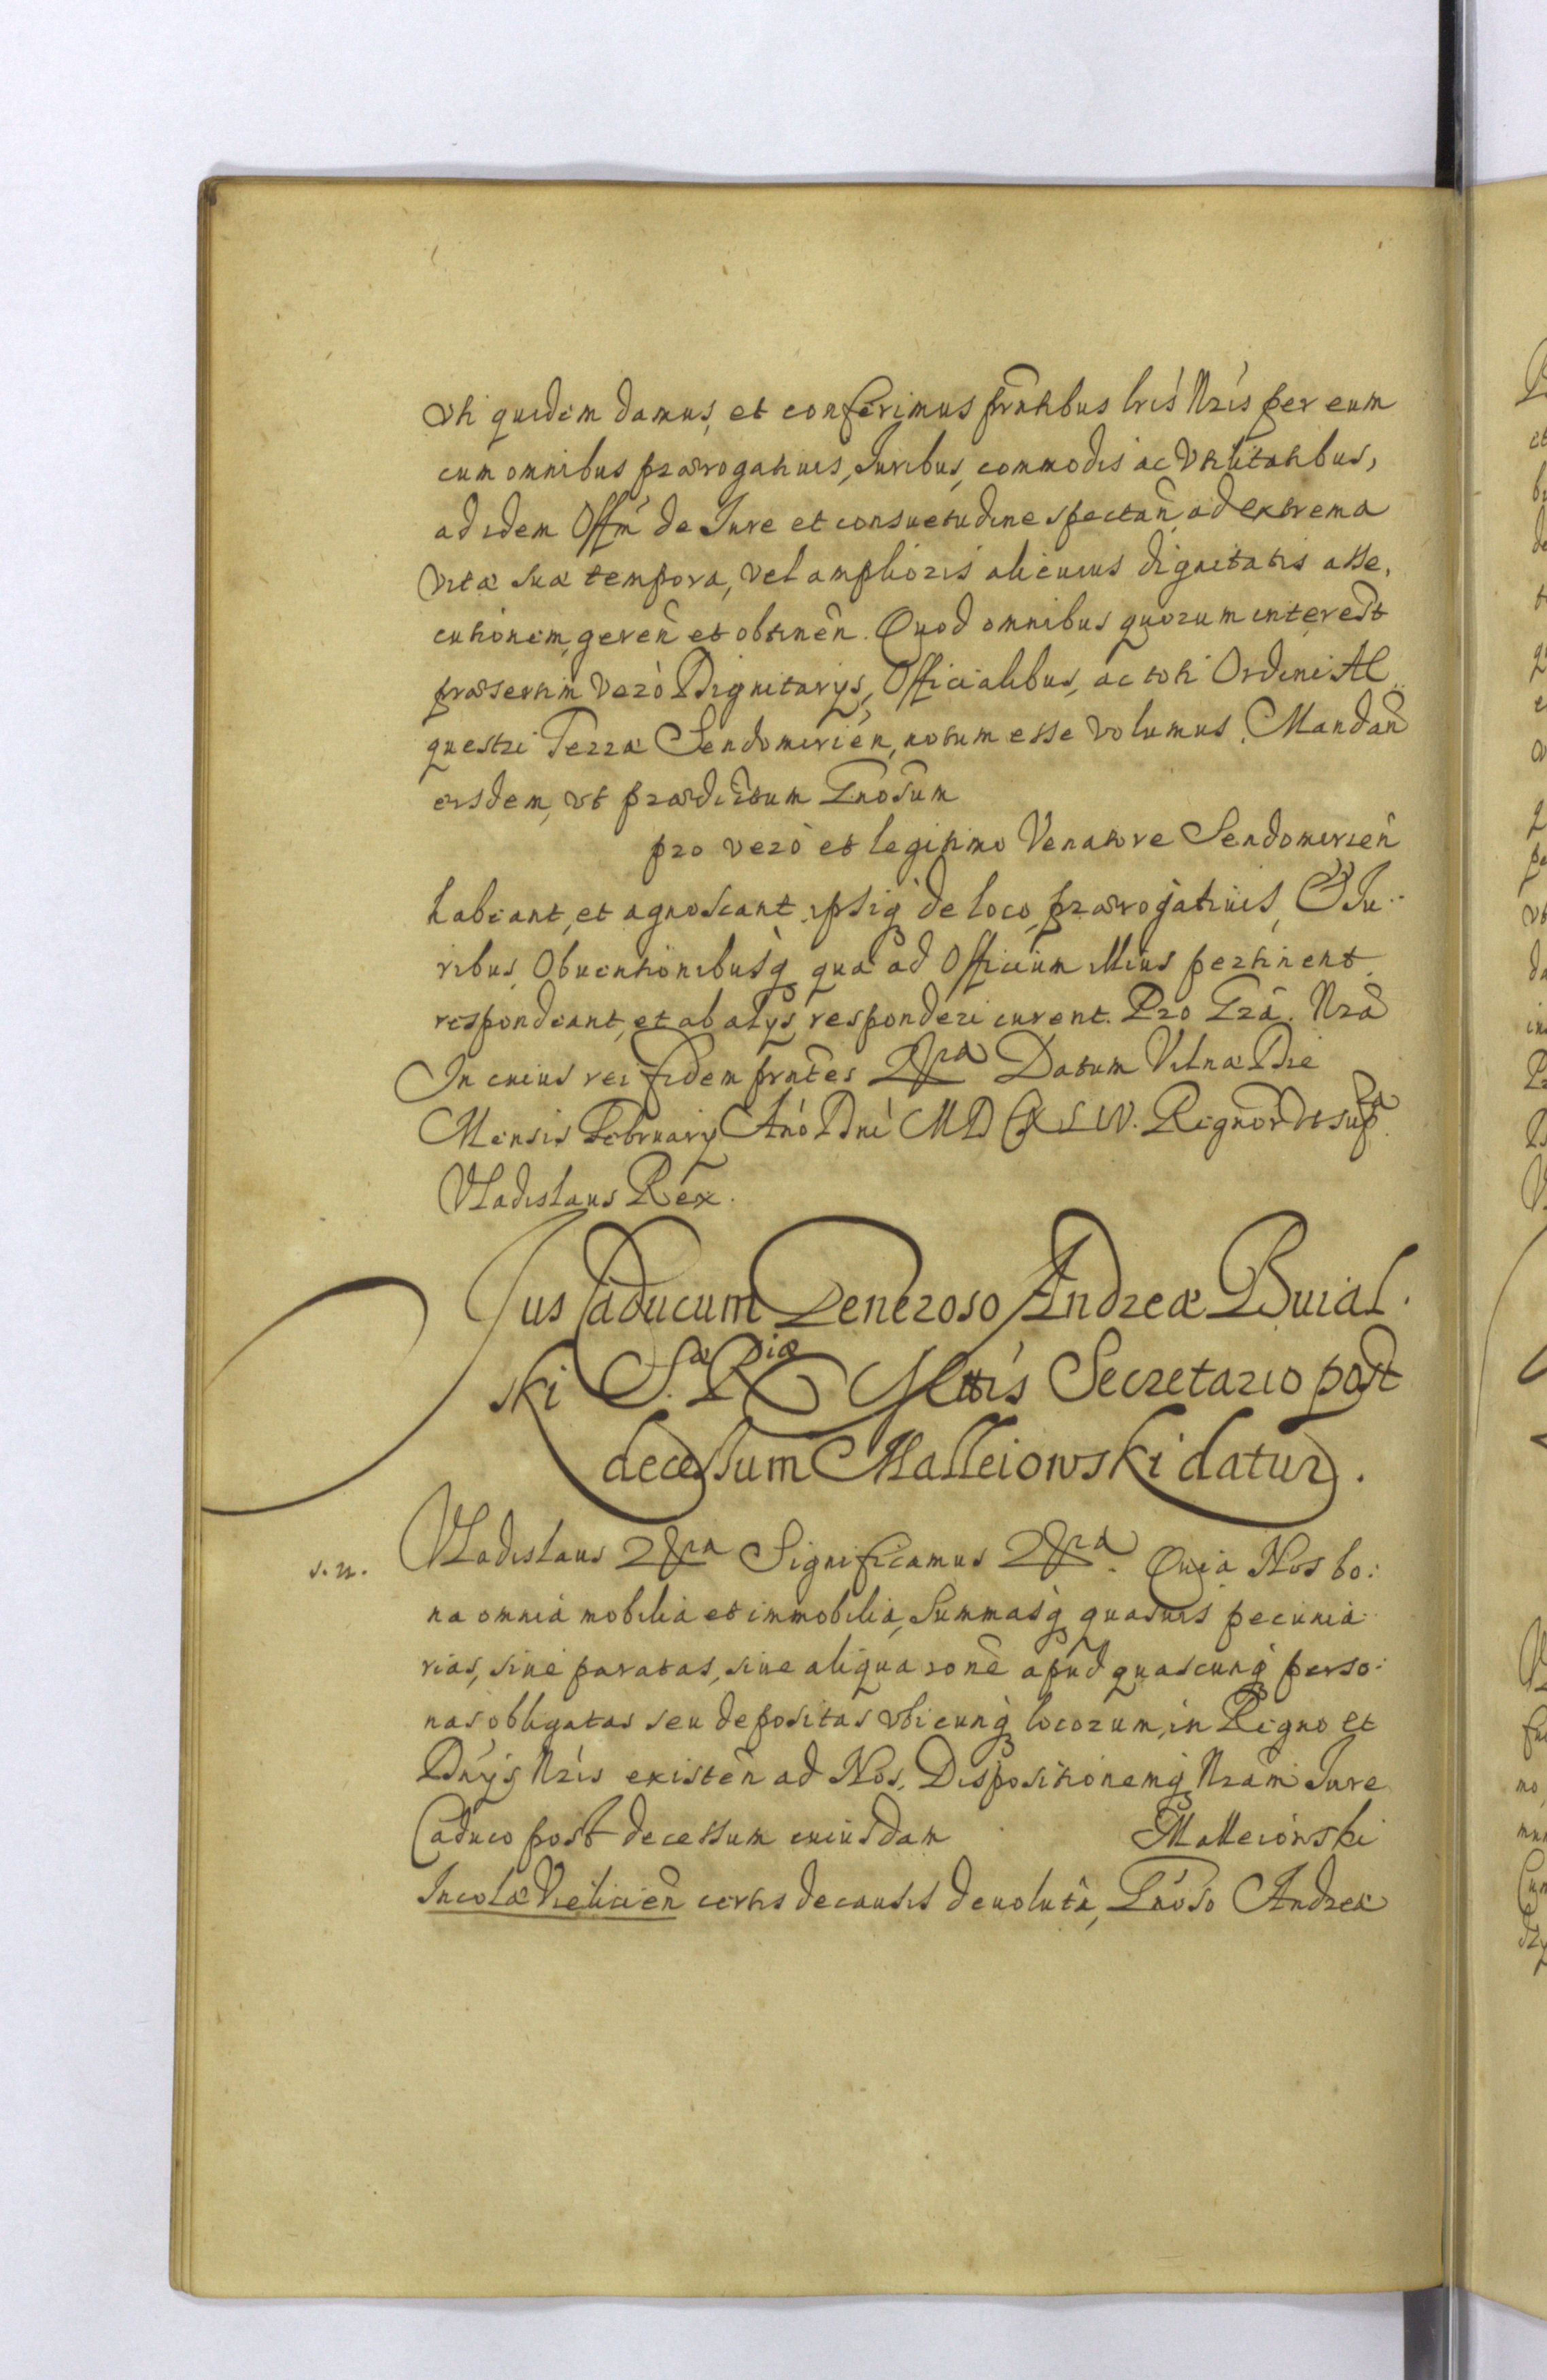 uti quidem damus, et conferimus prntibus lris Nris per eum
cum omnibus praerogatiuis, Iuribus, commodis ac Vtilitatibus,
ad idem Offm de Iure et consuetudine spectan, ad extrema
vitae suae tempora, vel amplioris alicuius dignitatis asse,
cutionem, geren et obtinen. Quod omnibus quorum interest
praesertim vero Dignitarys, Officialibus, ac toti Ordini Ae
questri Terrae Sendomirien, notum esse volumus. Mandan
eisdem, vt praedictum Gnosum
pro vero et legitimo Venatore Sendomirien
habeant, et agnoscant, ipsiq de loco, praerogatiuis, Iu
ribus, Obuentionibusq quae ad Officium illius pertinent
respondeant, et ab alys responderi curent. Pro Gra. Nra
In cuius rei fidem prntes &ra Datum Vilnae Die
Mensis February Ano Dni MDCXLIV. Regnor vt supra
Vladislaus Rex.
Ius Caducum Generoso Andreae Buial.
ski S.ae R.iae Mttis Secretario post
decessum Malleiowski datur.
s. n. Vladislaus &ra Significamus &ra. Quia Nos bo:
na omnia mobilia et immobilia, Summasq quasuis pecunia
rias, siue paratas, siue aliqua rone apud quascunq perso:
nas obligatas seu depositas vbicunq locorum, in Regno et
Dnys Nris existen ad Nos, Dispositionemq Nram Iure
Caduco post decessum cuiusdam Malleiowski
Incolae Vielicien certis de causis deuoluta, Gnoso Andreae